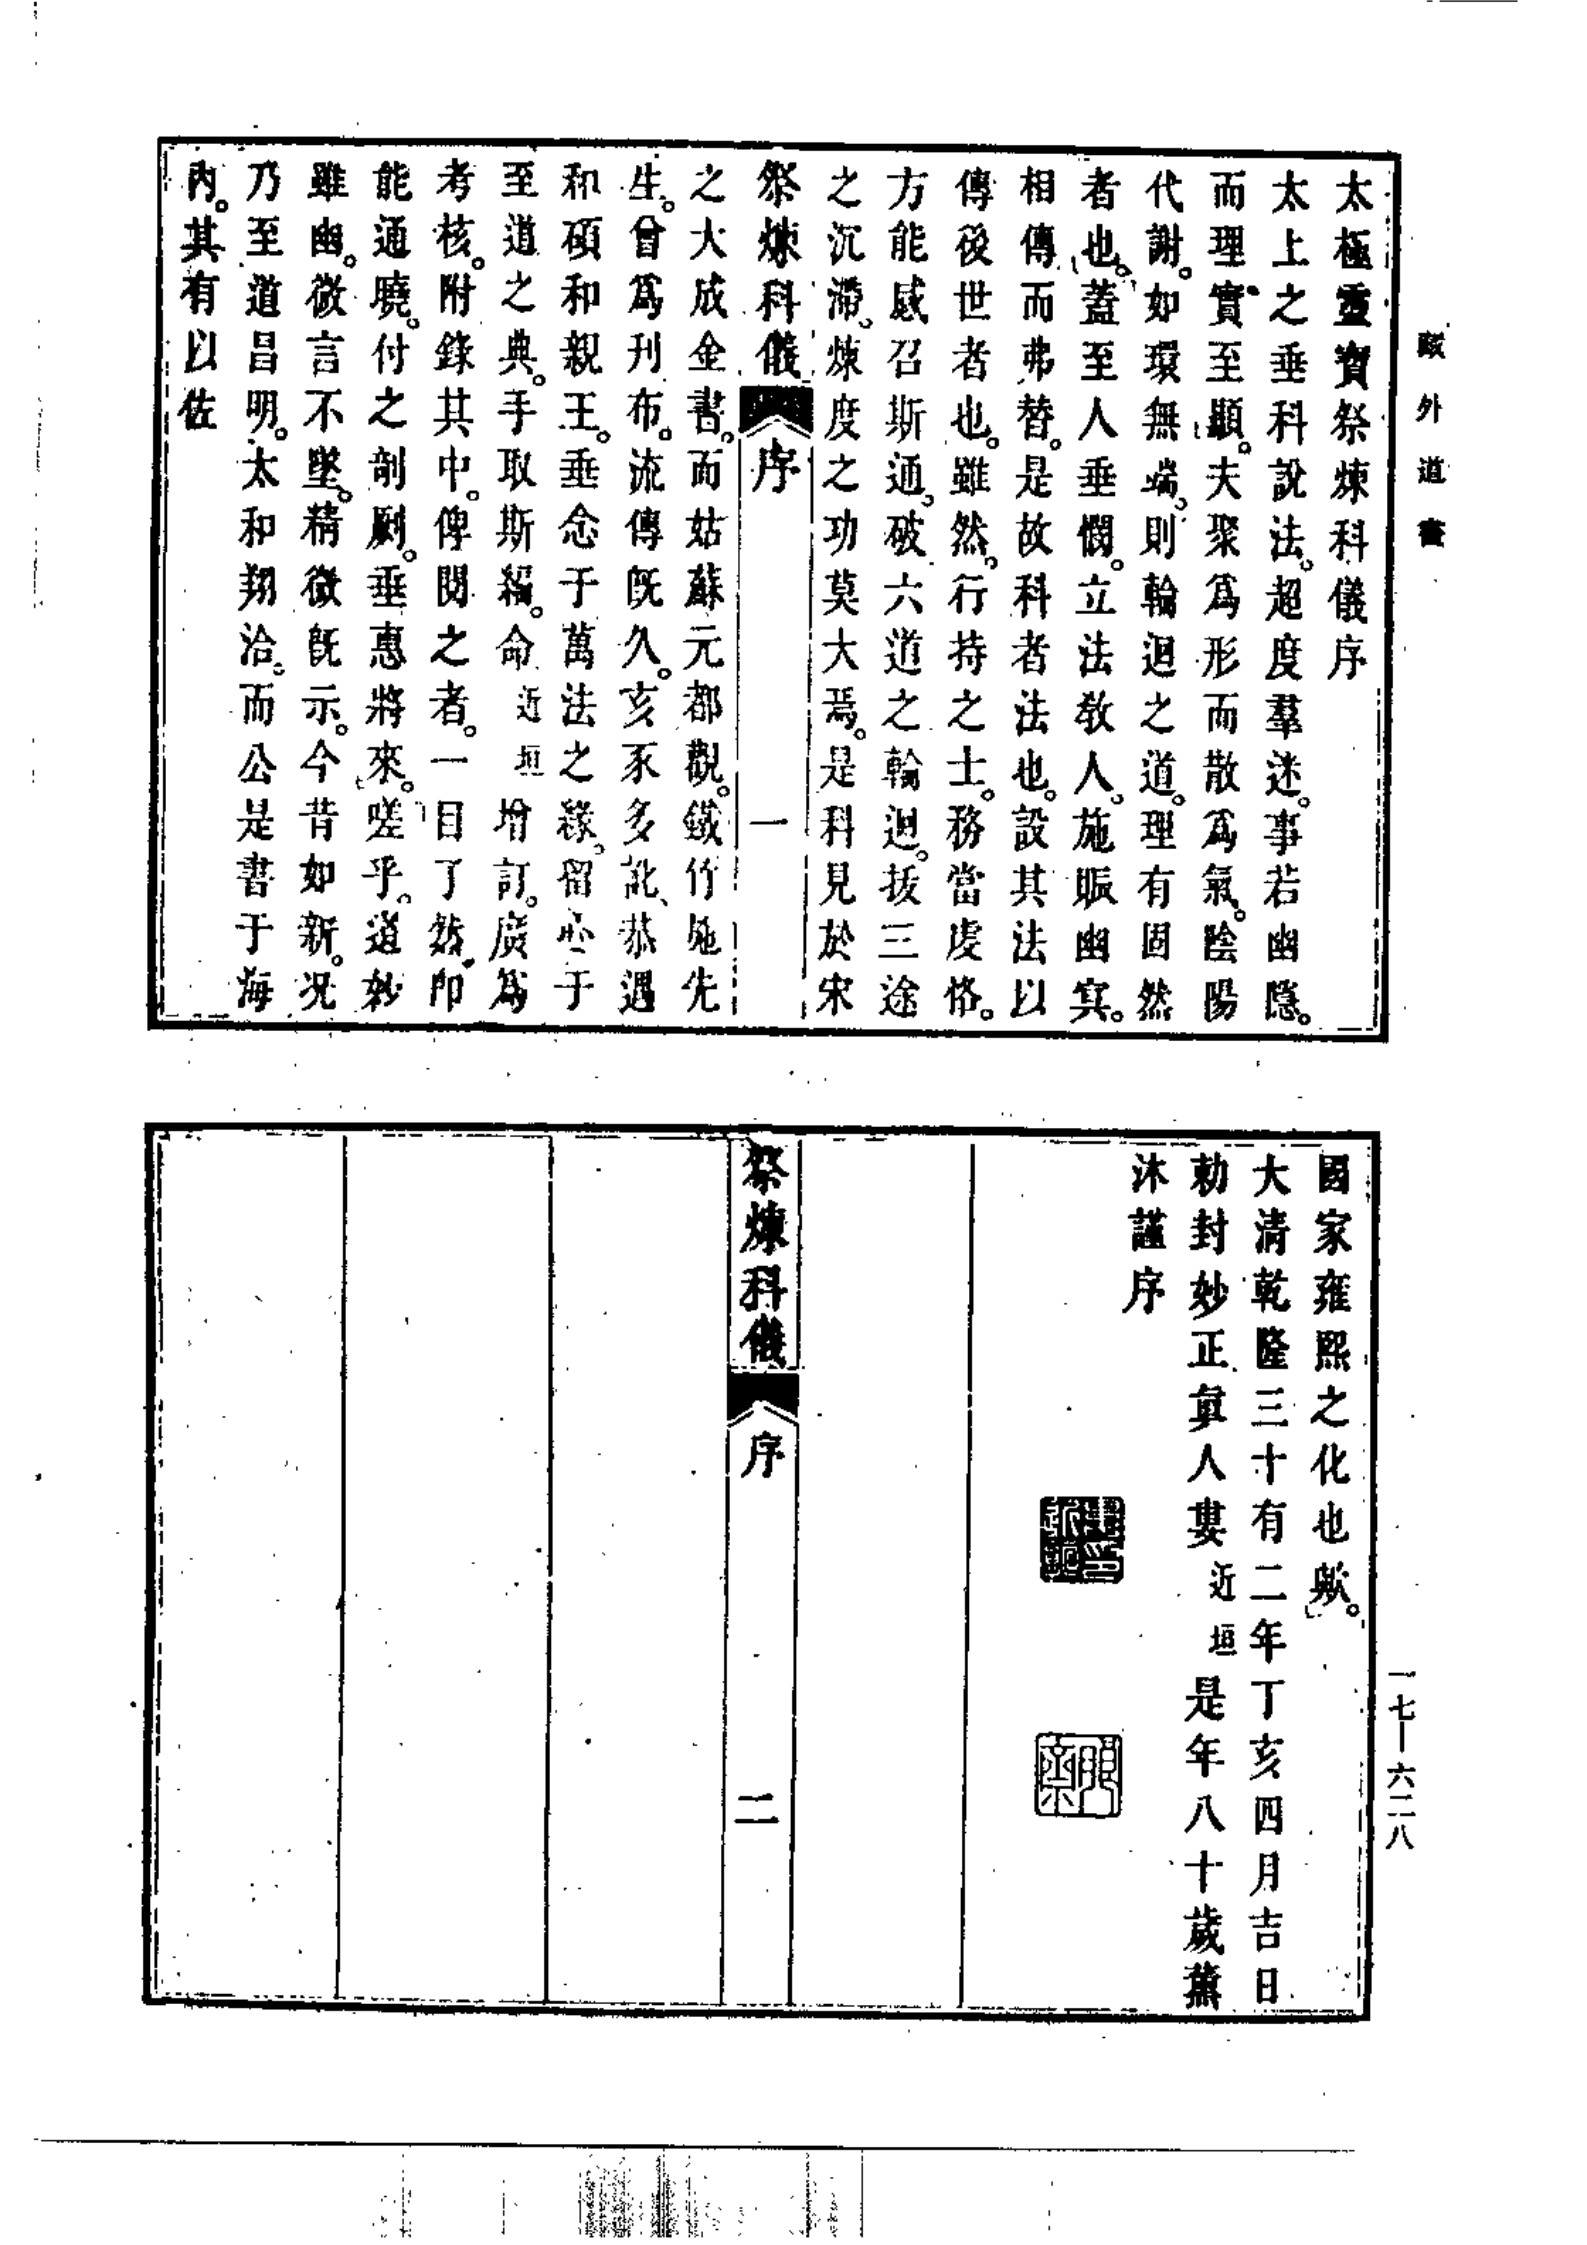 藏外道書
太極靈寶祭煉科儀序
太上之垂科說法。超度羣迷。事若幽隱。
而理實至顯。夫聚爲形而散爲氣。陰陽
代謝。如環無端。則輪迴之道。理有固然
者也。蓋至人垂憫。立法敎人。施賑幽冥。
相傳而弗替。是故科者法也。設其法以
傳後世者也。雖然。行持之士。務當虔恪。
方能感召斯通。破六道之輪迴。拔三途
之沉滯。煉度之功莫大焉。是科見於宋
祭煉科儀 序 一
之大成金書。而姑蘇元都觀。鐵竹施先
生。曾爲刋布。流傳旣久。亥豕多訛、恭遇
和碩和親王。垂念于萬法之緣。留心于
至道之典。手取斯編。命近垣增訂。廣爲
考核。附錄其中。俾閱之者。一目了然。卽
能通曉。付之剞劂。垂惠將來。嗟乎。道妙
雖幽。微言不墜。精微旣示。今昔如新。况
乃至道昌明。太和翔洽。而公是書于海
內。其有以佐
國家雍熙之化也歟。
大清乾隆三十有二年丁亥四月吉日
勅封妙正眞人婁近垣是年八十歲薰
沐謹序
祭煉科儀 序 二
一七—六二八